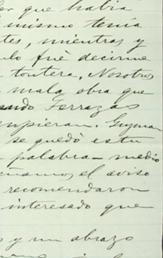 er que había
mismo tenía
tes, mientras y
lo fué decirme
tontera. Nosotros
mala obra que
ando Terrazas
upieran. Guzman
se quedó esta
palabra - medio
el aviso
recomendaron
interesado que
y un abrazo